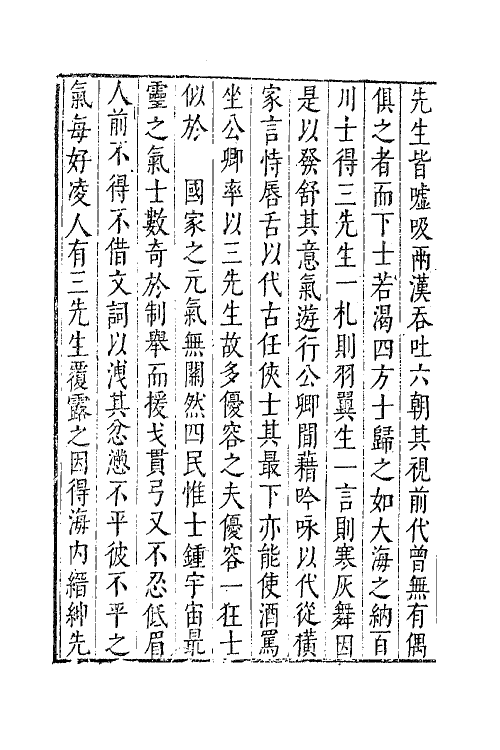 先生皆噓吸兩漢吞吐六朝其視前代曾無有偶
俱之者而下士若渴四方士歸之如大海之納百
川士得三先生一札則羽翼生一言則寒灰舞因
是以發舒其意氣遊行公卿間藉吟咏以代從橫
家言恃唇舌以代古任俠士其最下亦能使酒罵
坐公卿率以三先生故多優容之夫優容一狂士
似於　國家之元氣無關然四民惟士鍾宇宙最
靈之氣士數奇於制舉而援戈貫弓又不忍低眉
人前不得不借文詞以洩其忿懣不平彼不平之
氣每好凌人有三先生覆露之因得海內縉紳先